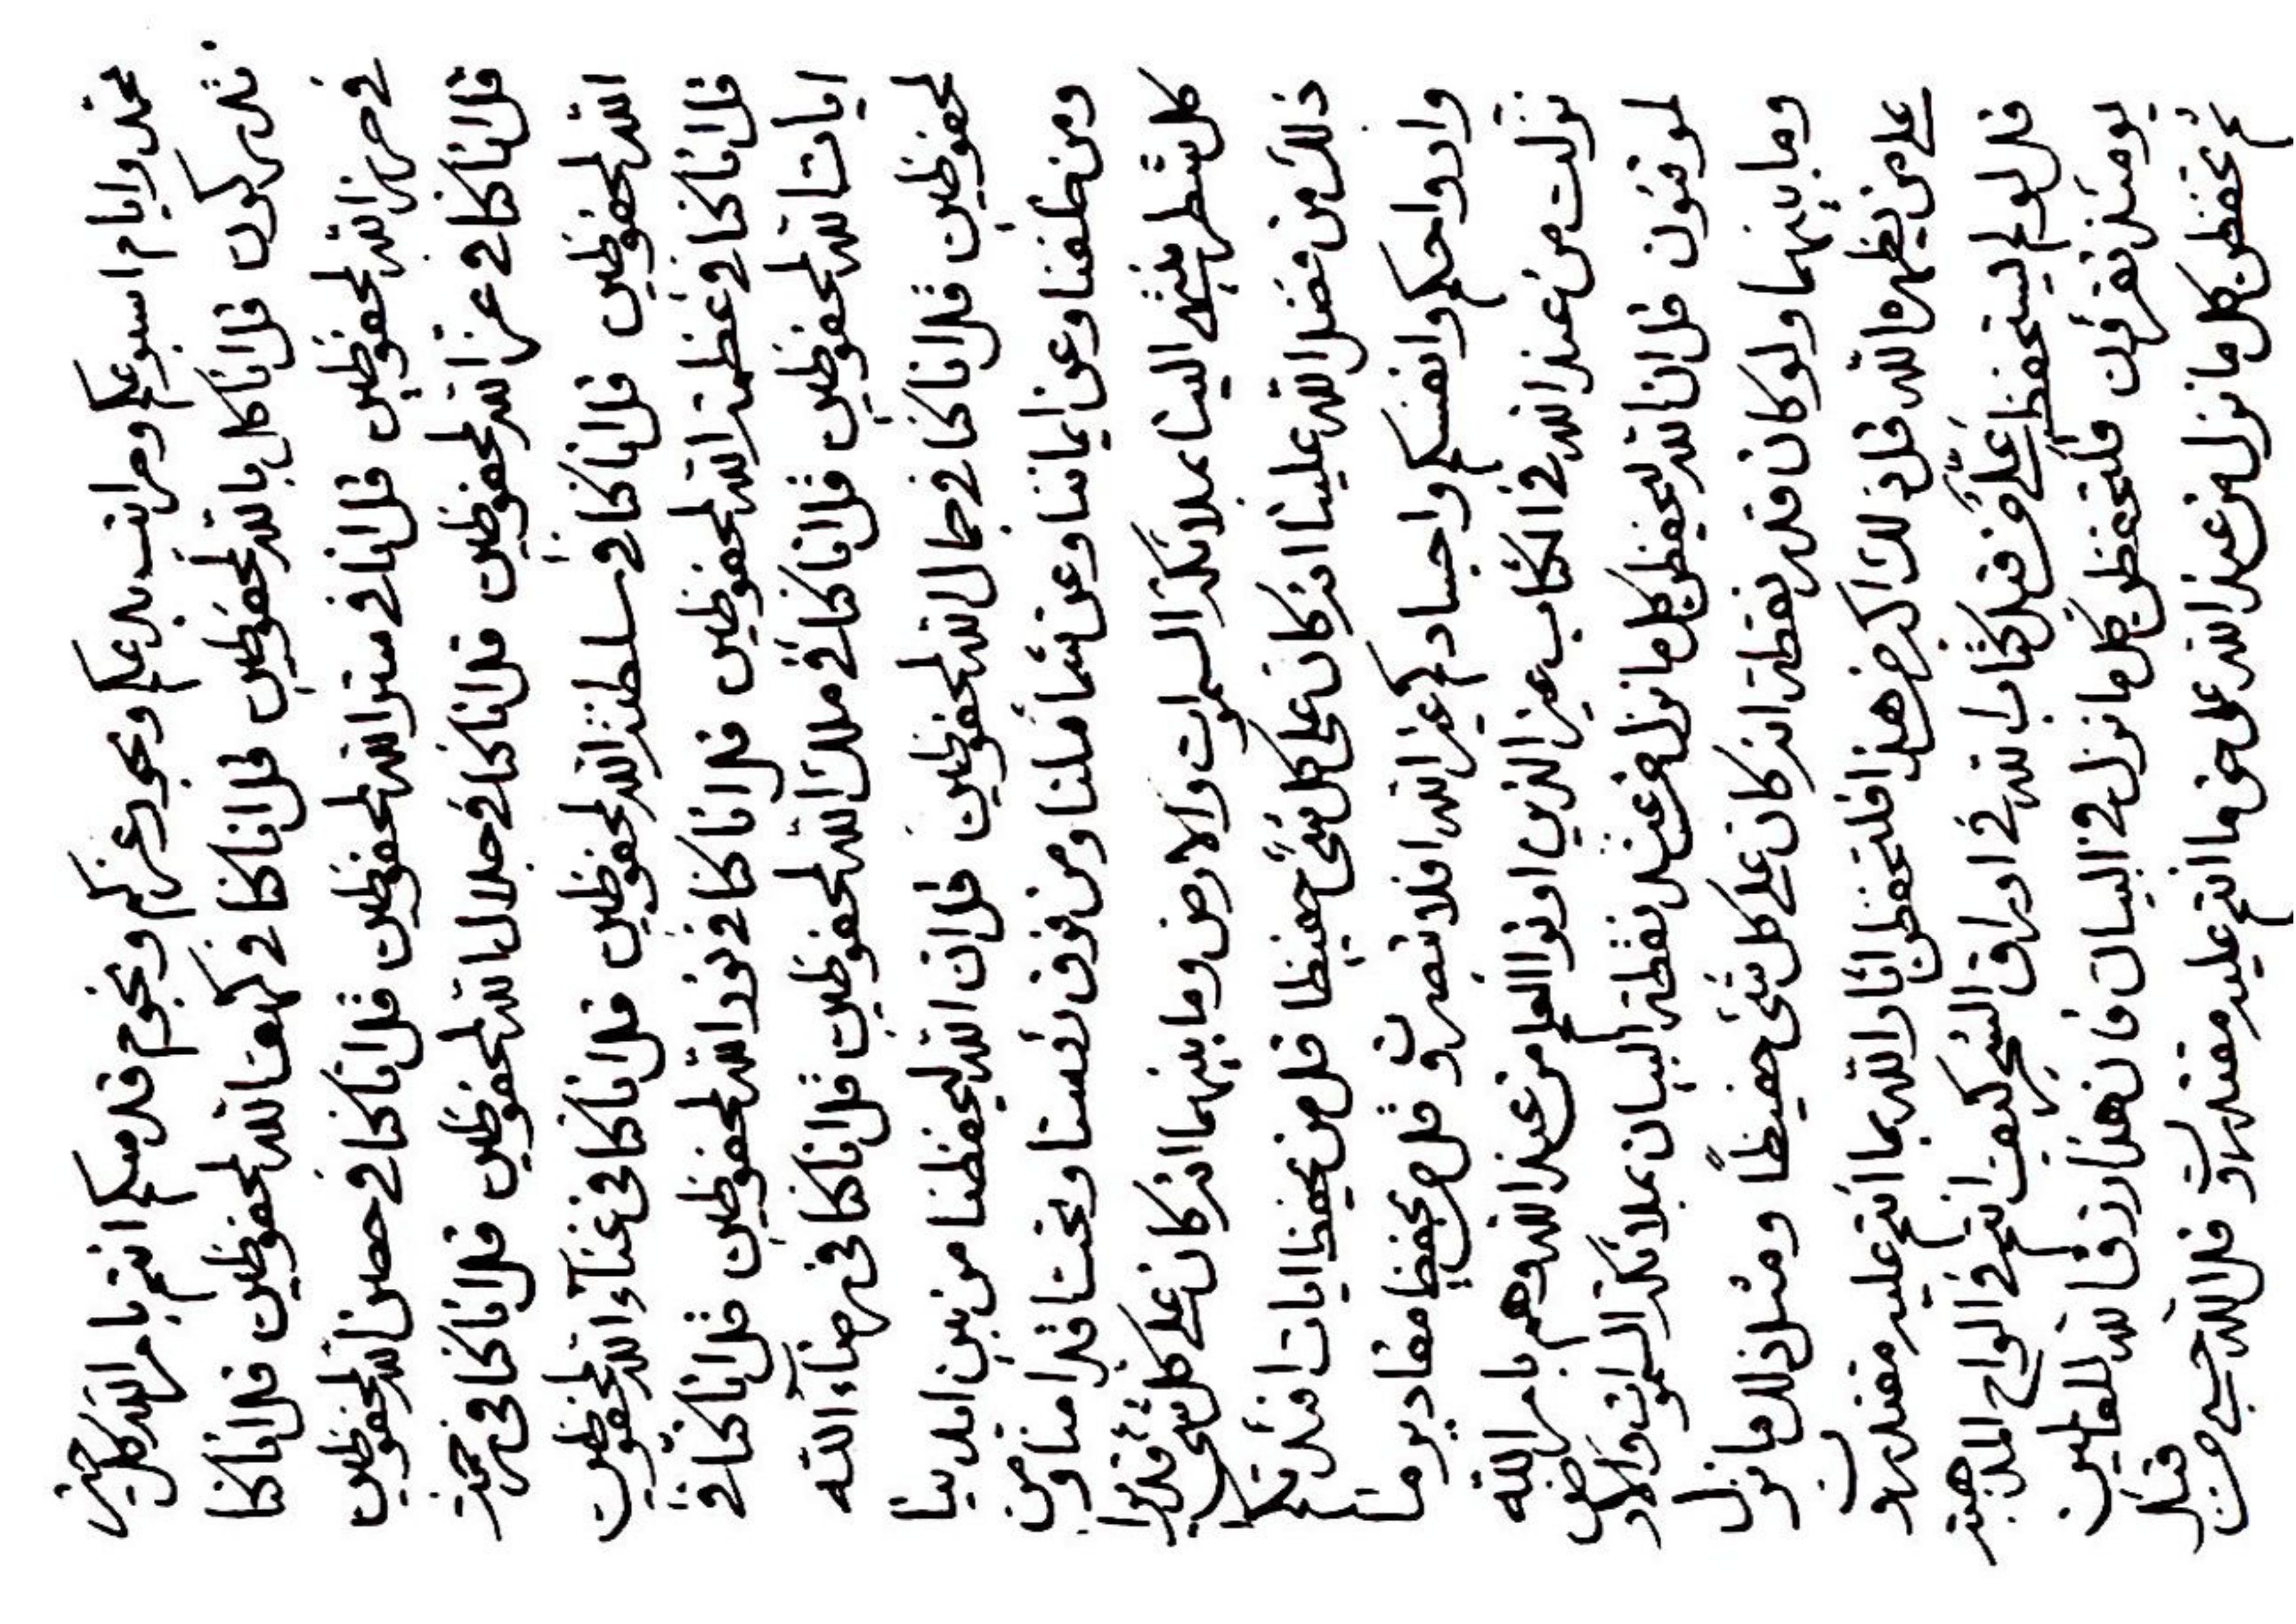 وايام اسبوعكم ومراتب بدعكم و بجود عزكم ونجوم قدسكم انتم بامر الله كل حين
تدركون قل انا كل بالله لمحفوظين قل انا كنا في كهف الله لمحفوظين قل انا كنا
في حرز الله لمحفوظين قل انا في ستر الله لمحفوظين قل انا كنا في حصن الله لمحفوظين
قل انا كنا في عز الله لمحفوظين قل انا كنا في جلال الله لمحفوظين قل انا كنا في رحمة
الله لمحفوظين قل انا كنا في سلطنة الله لمحفوظين قل انا كنا في غنآء الله لمحفوظين
قل انا كنا في عظمة الله لمحفوظين قل انا كنا في نور الله لمحفوظين قل انا كنا في
ايات الله لمحفوظين قل انا كنا في ملك الله لمحفوظين قل انا كنا في رضآء الله
لمحفوظين قل انا كنا في جمال الله لمحفوظين قل ان الله ليحفظنا من بين ايدينا
ومن خلفنا وعن ايماننا وعن شمائلنا ومن فوق رؤسنا وتحت اقدامنا ومن
كل شطر ينتهي الينا بملائكة السموات والارض وما بينهما انه كان على كل شيء قديرا
ذلك من فضل الله علينا انه كان على كل شيء حفيظا قل من يحفظ ايات افئدتكم
وارواحكم وانفسكم واجسادكم غير الله افلا تبصرون قل من يحفظ مقادير ما
نزلت من عند الله في الكتاب غير الذين اوتوا العلم من عند الله وهم بامر الله
لموقنون قل ان الله ليحفظن كل ما نزل من عند نقطة البيان بملائكة السموات والارض
وما بينهما ولو كان قدر نقطة انه كان على كل شيء حفيظاً ومثل ذلك ما نزل
على من يظهره الله قل ذلك اكبر من هذا فلتحفظن اثار الله بما انتم عليه مقتدرون
قل لو لم يستحفظ قبل كتاب الله في اوراق الشجر كيف انتم في الواح المذهبة
يومئذ تفرقون فلتحفظن كل ما نزل في البيان فان هذا رزق الله للعالمين
ثم تحفظن كل ما نزل من عند الله على حق ما انتم عليه مقتدرون قل الله حسبي من قبل